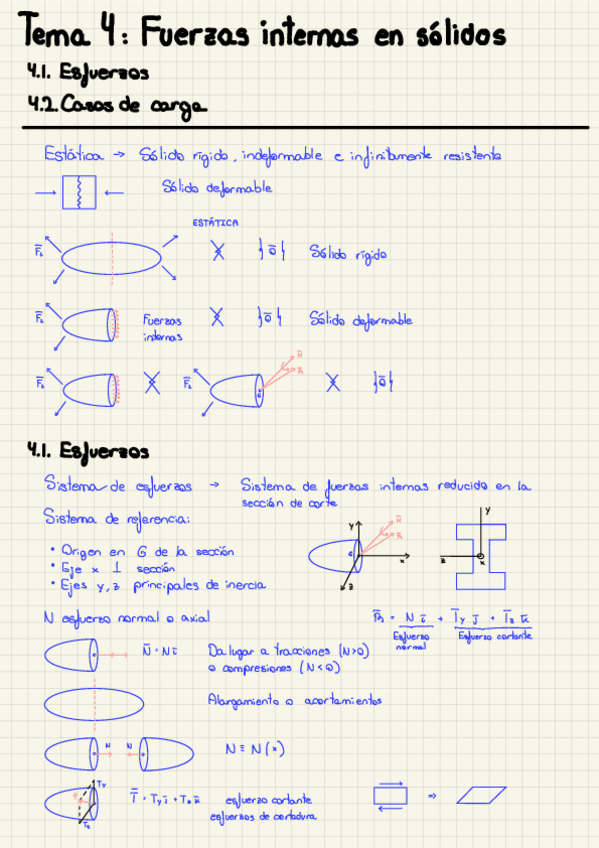 Tema 4: Fuerzas internas en sólidos
4.1. Esfuerzos
4.2. Casos de carga
Estática → Sólido rígido, indeformable e infinitamente resistente
Sólido deformable
ESTÁTICA
Sólido rígido
Fuerzas internas
Sólido deformable
4.1. Esfuerzos
Sistema de esfuerzos → Sistema de fuerzas internas reducido en la
sección de corte
Sistema de referencia:
• Origen en G de la sección
• Eje x ⊥ sección
• Ejes y, z principales de inercia
y
x
z
y
z
x
N esfuerzo normal o axial
R̄ = N ī + Ty j̄ + Tz k̄
Esfuerzo normal
Esfuerzo cortante
N̄ = N ī
Da lugar a tracciones (N>0)
o compresiones (N<0)
Alargamiento o acortamientos
N N
N ≡ N(x)
Ty
Tz
esfuerzo cortante
esfuerzos de cortadura
⇒